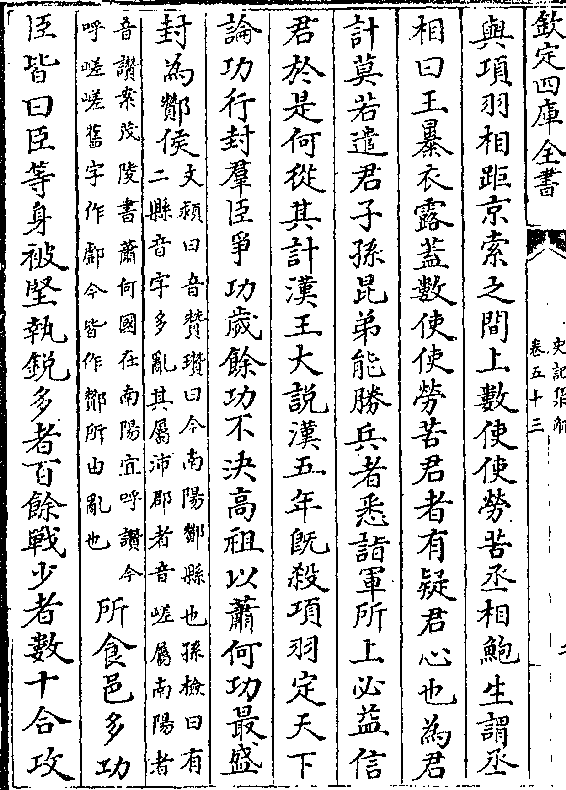 欽定四庫全書
史記集解
卷五十三
二
與項羽相距京索之間上數使使勞苦丞相鮑生謂丞
相曰王暴衣露蓋數使使勞苦君者有疑君心也為君
計莫若遣君子孫昆弟能勝兵者悉詣軍所上必益信
君於是何從其計漢王大說漢五年既殺項羽定天下
論功行封羣臣爭功歲餘功不決高祖以蕭何功最盛
封為酇侯文穎曰音贊瓚曰今南陽酇縣也孫檢曰有
二縣音字多亂其屬沛郡者音嵯屬南陽者
音讚案茂陵書蕭何國在南陽宜呼讚今
呼嵯嵯舊字作𨝙今皆作酇所由亂也所食邑多功
臣皆曰臣等身被堅執銳多者百餘戰少者數十合攻